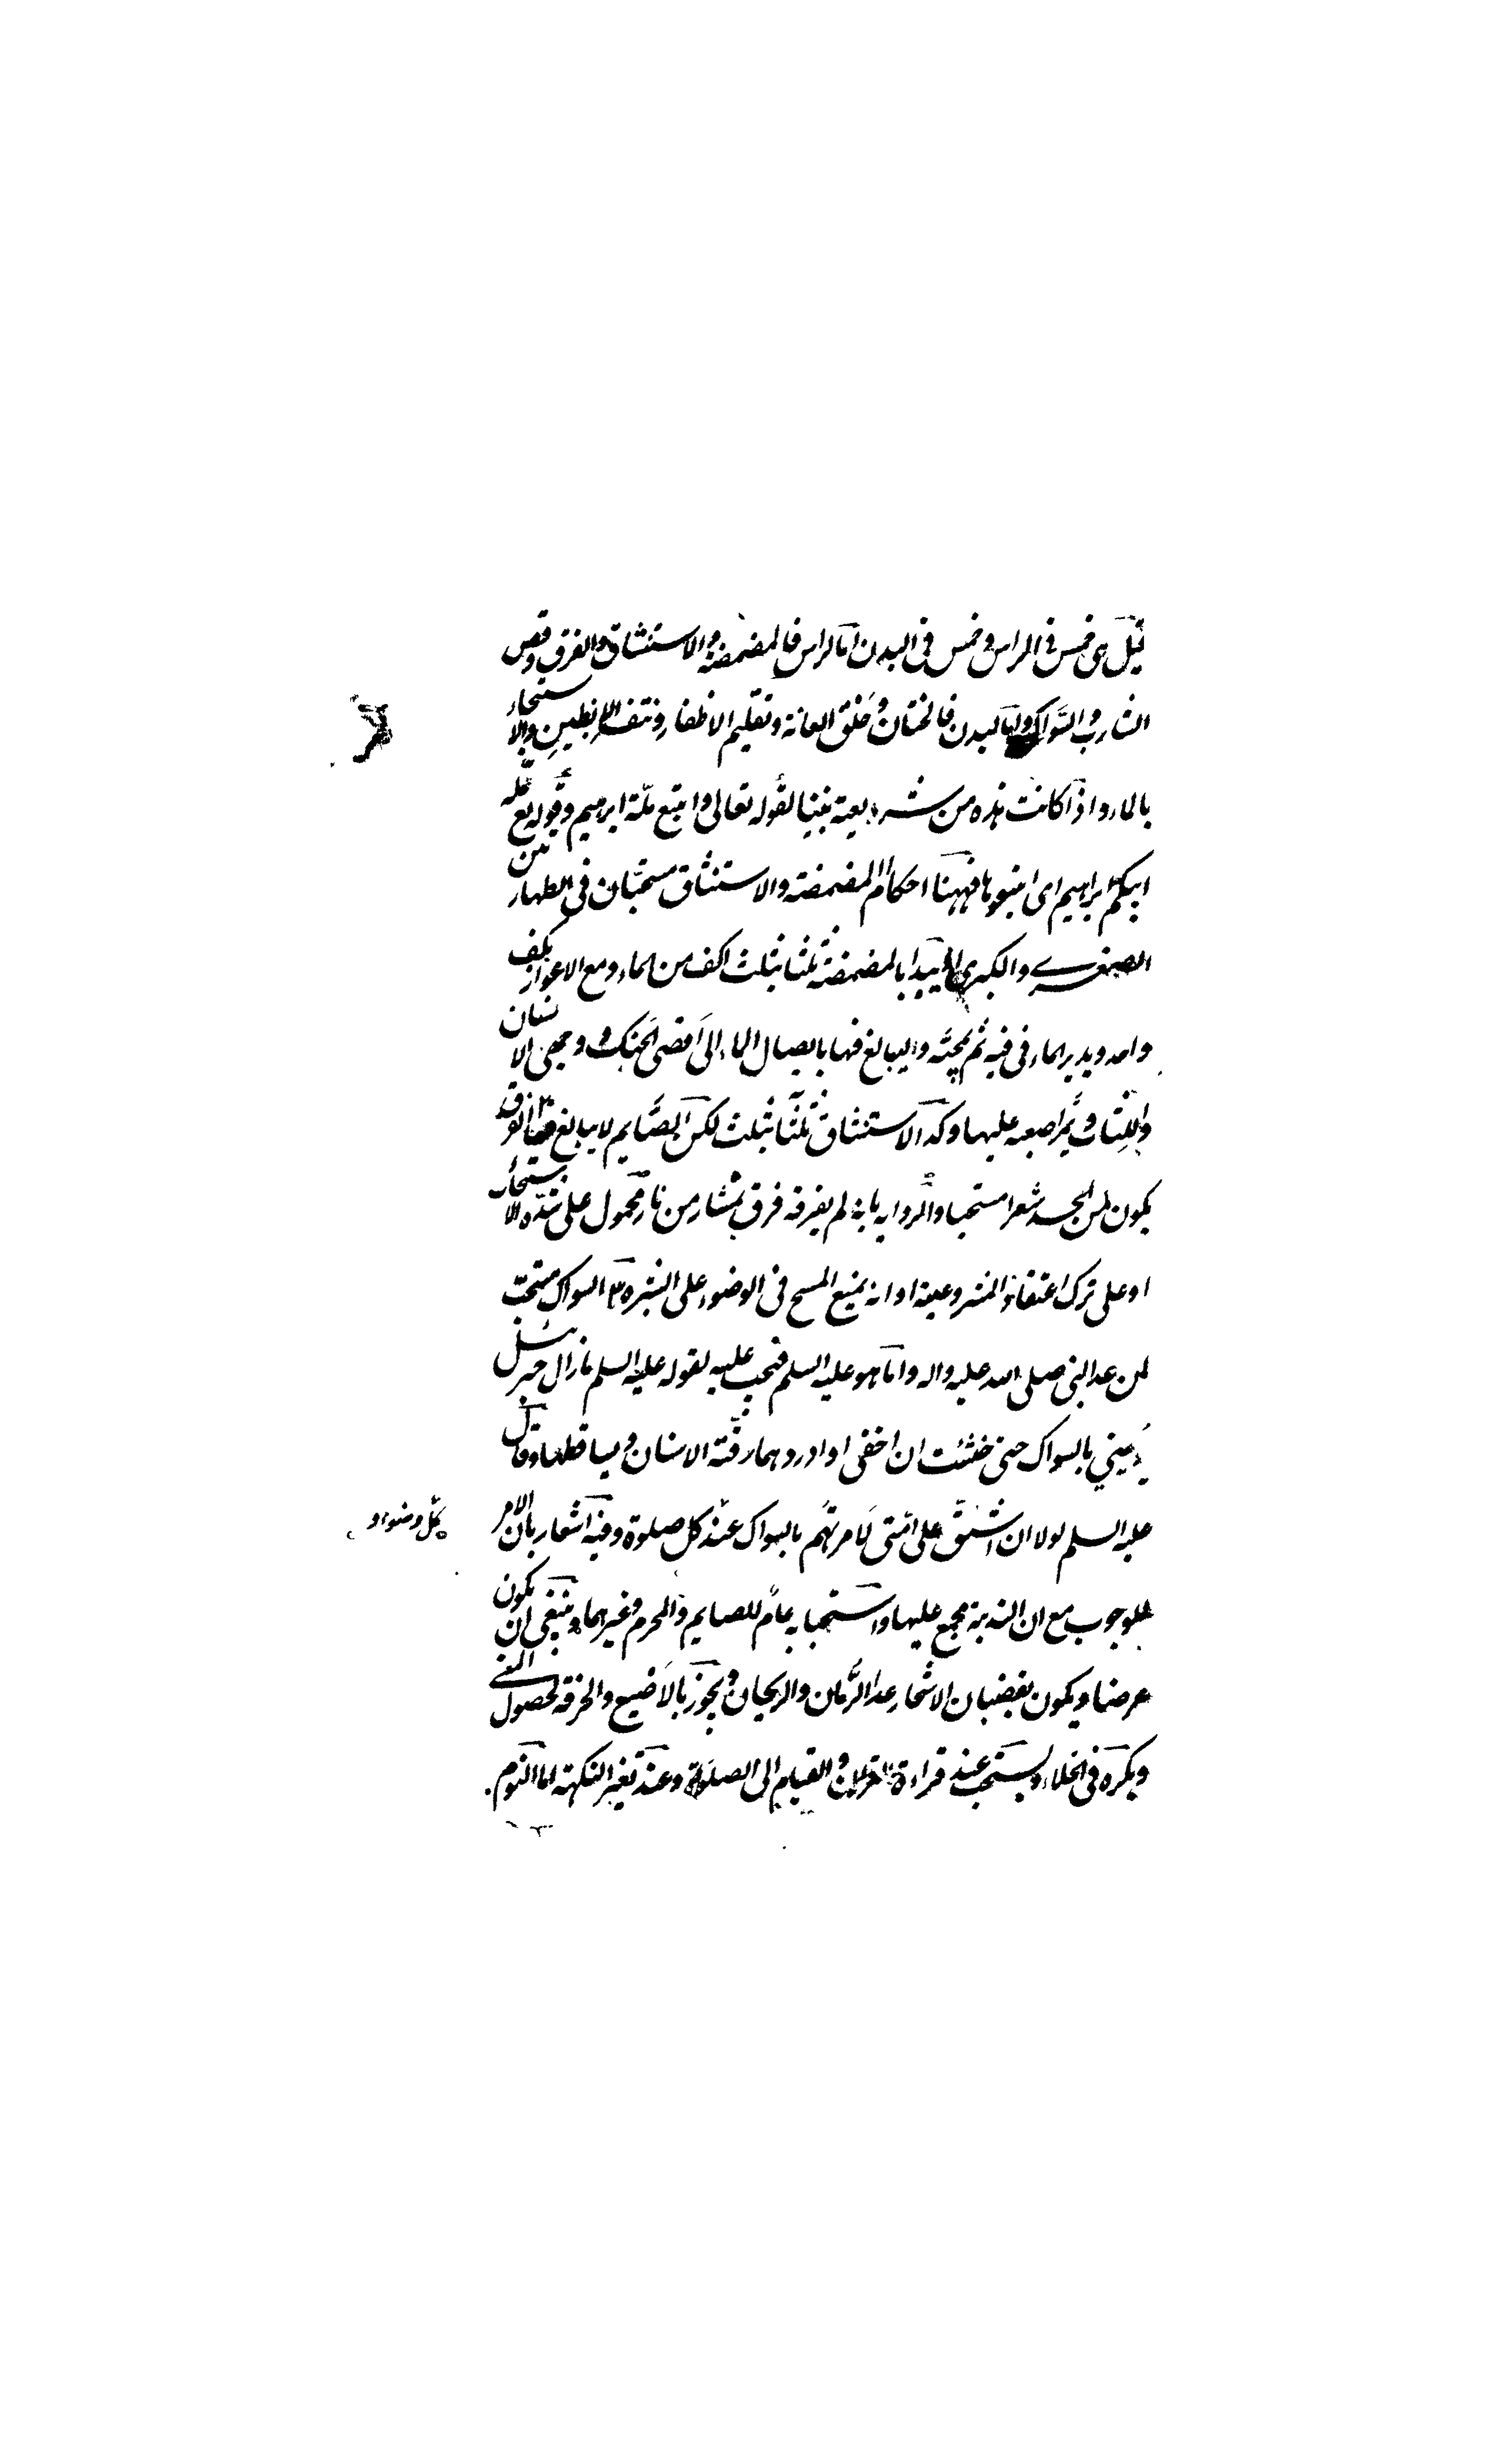 قيل هي خمس في الراس وخمس في البدن اما الراس فالمضمضة والاستنشاق والفرق وقص
الشارب والسواك واما البدن فالختان وحلق العانة وتقليم الاظفار ونتف الابطين والاستنجاء
بالماء واذا كانت هذه من شريعة نبينا لقوله تعالى واتبع ملة ابرهيم وقوله تع ملة
ابيكم ابراهيم اى اتبعوها فههنا احكام ا المضمضة والاستنشاق مستحبان فى الطهارتين
الصغرى والكبرى يبدا بالمضمضة ثلثا بثلث اكف من الماء ومع الاعواز بكف
واحد ويدير الماء فى فيه ثم يمجه واليبالغ فيها بايصال الماء الى اقصى الحنك ووجهى الاسنان
واللثات ويمر اصبعه عليها وكذا الاستنشاق ثلثا بثلث لكن الصايم لا يبالغ فيهما ٢ الفرق
يكون لمن اتخذ شعرا مستحبا والرواية بان لم يفرقه فرق بمنشار من نار محمول على شدة الاستحباب
او على ترك اعتقاد المشروعية او انه يمنع المسح فى الوضوء على البشرة ٣ السواك مستحب
لمن عدا النبى صلى الله عليه واله واما هو عليه السلم فيجب عليه لقوله عليه السلم ما زال جبرئيل
يوصيني بالسواك حتى خشيت ان احفى او ادرد وهما رقة الاسنان وتساقطها وقال
عليه السلم لولا ان اشق على امتى لامرتهم بالسواك عند كل صلوة وفيه اشعار بان الامر
كل وضوء و
للوجوب مع ان الندبية مجمع عليها واستحبابه عام للصايم والمحرم وغيرهما وينبغى ان يكون
عرضا ويكون بقضبان الاشجار عدا الرمان والريحان ويجوز بالاصبع والخرقة لحصول المعنى
ويكره فى الخلاء ويستحب عند قراءة القران والقيام الى الصلوة وعند تغير النكهة اما النوم